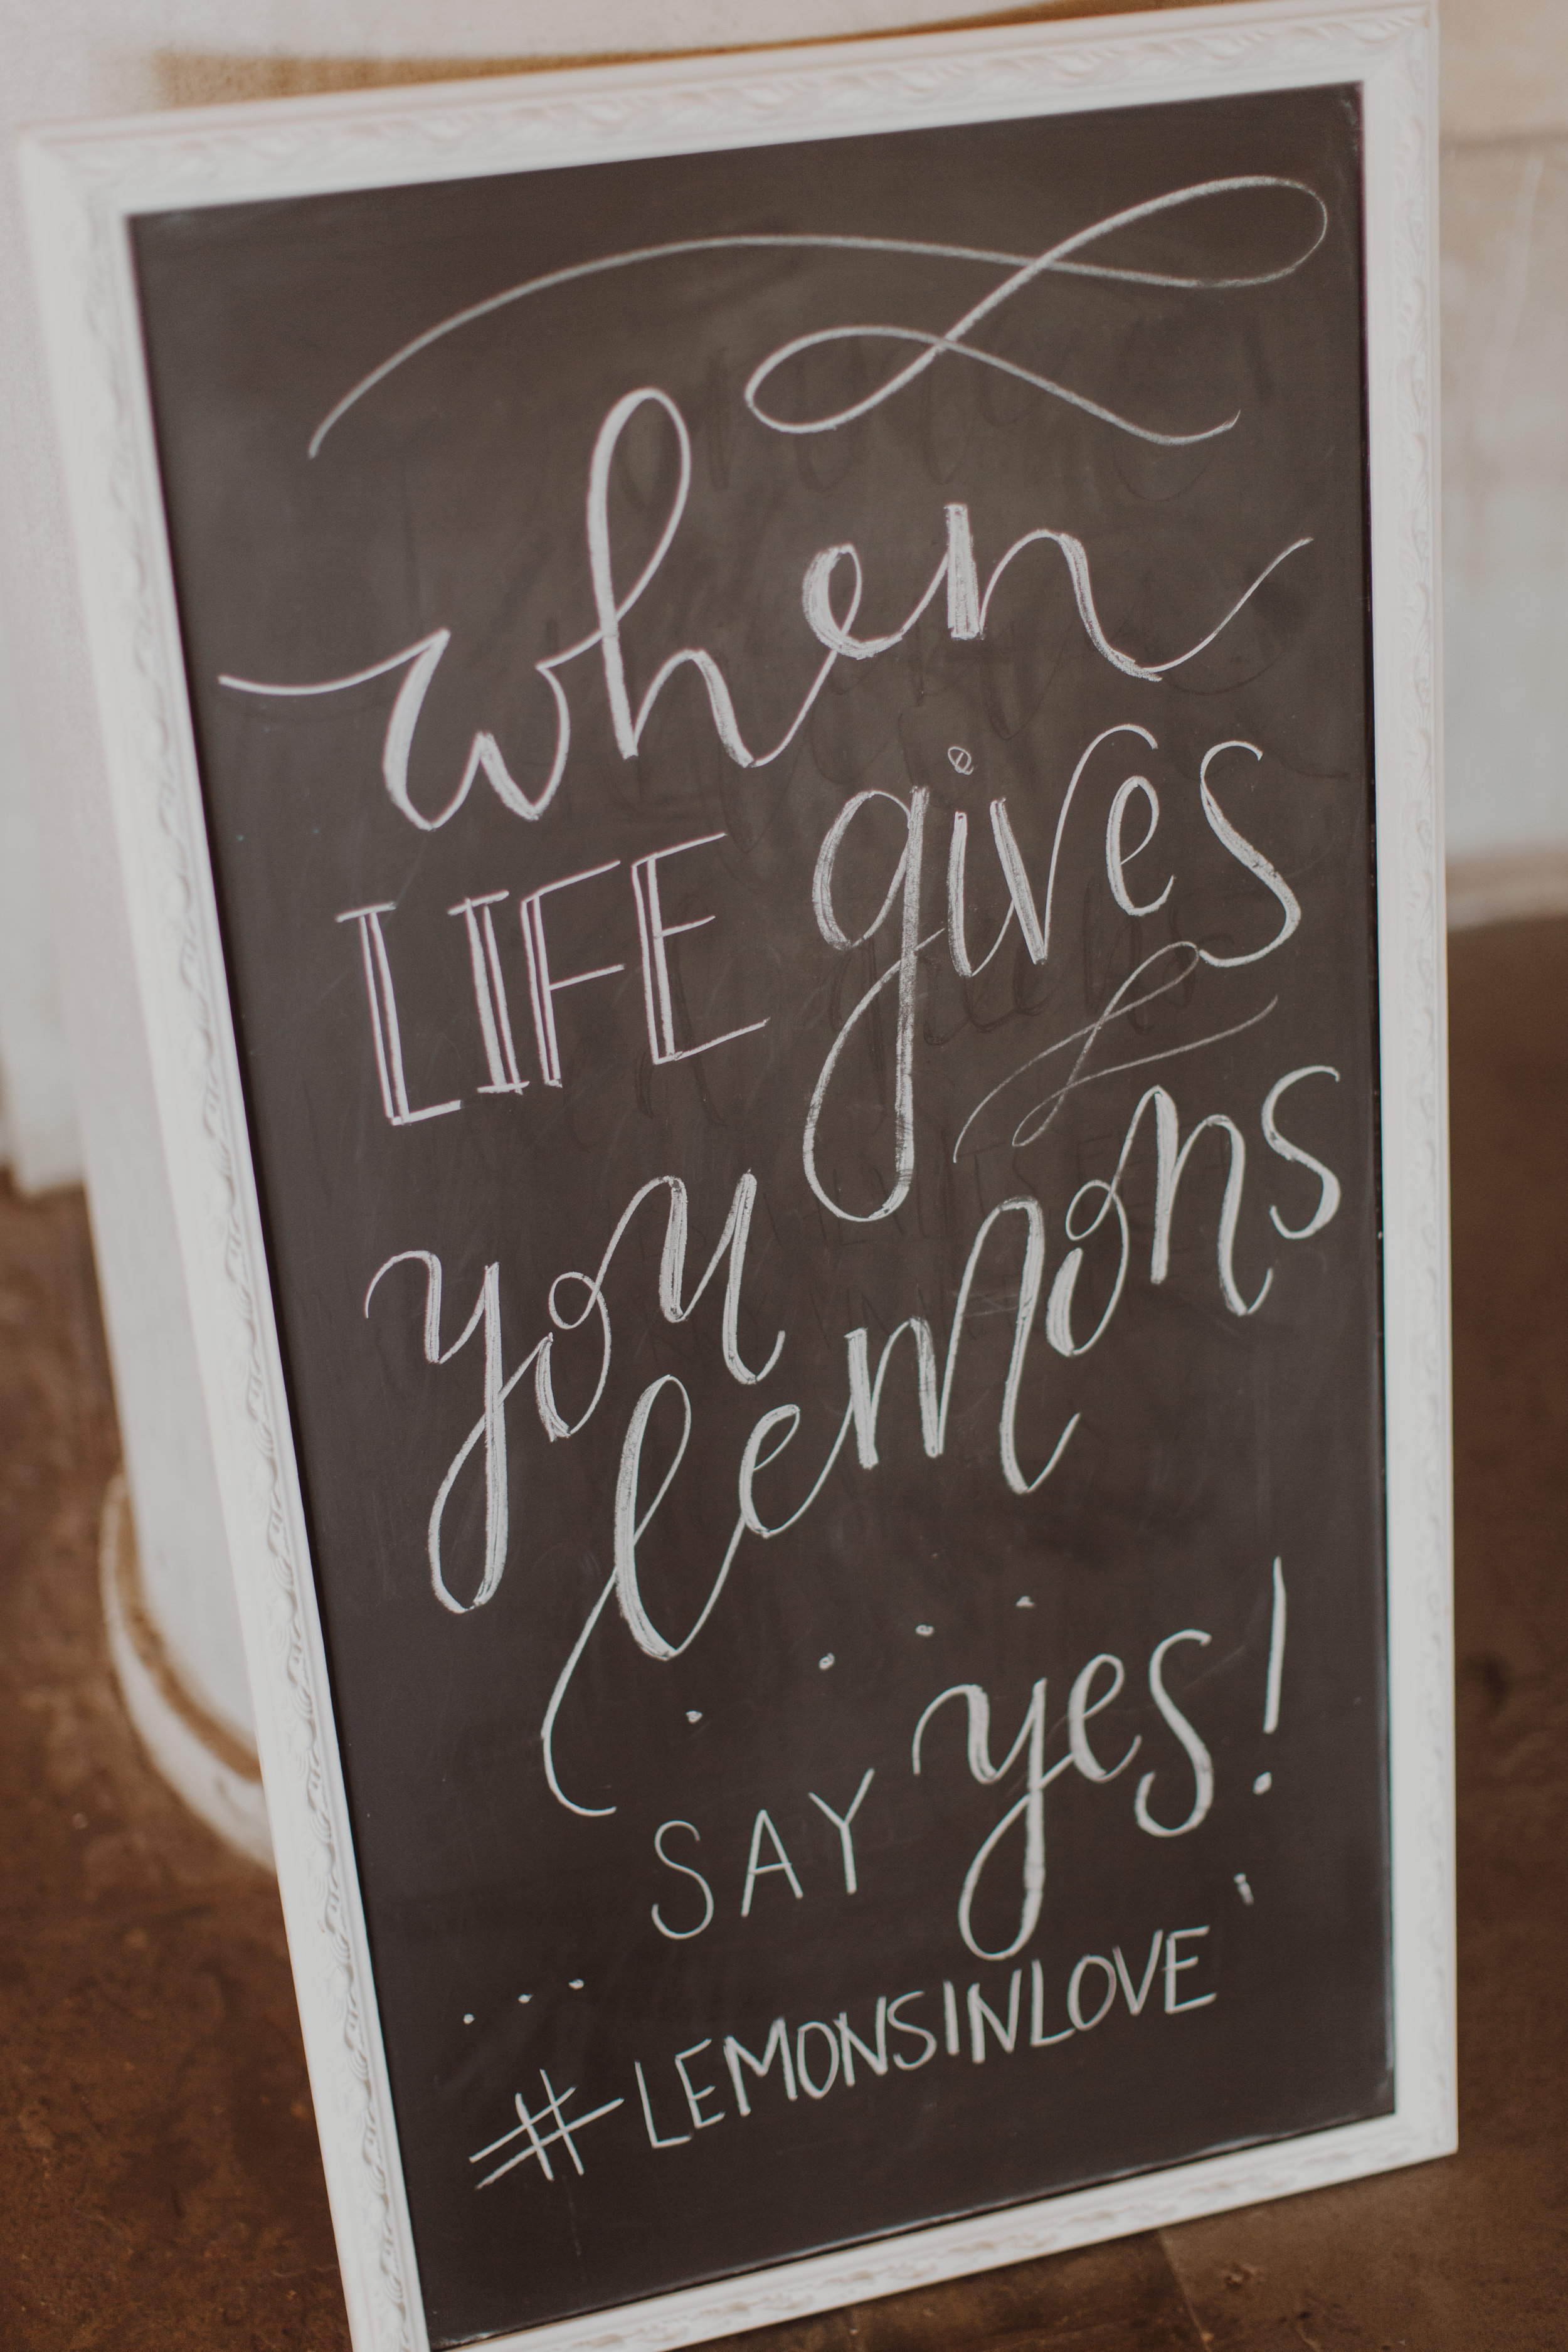 when
LIFE gives
you
lemons
SAY yes!
#LEMONSINLOVE